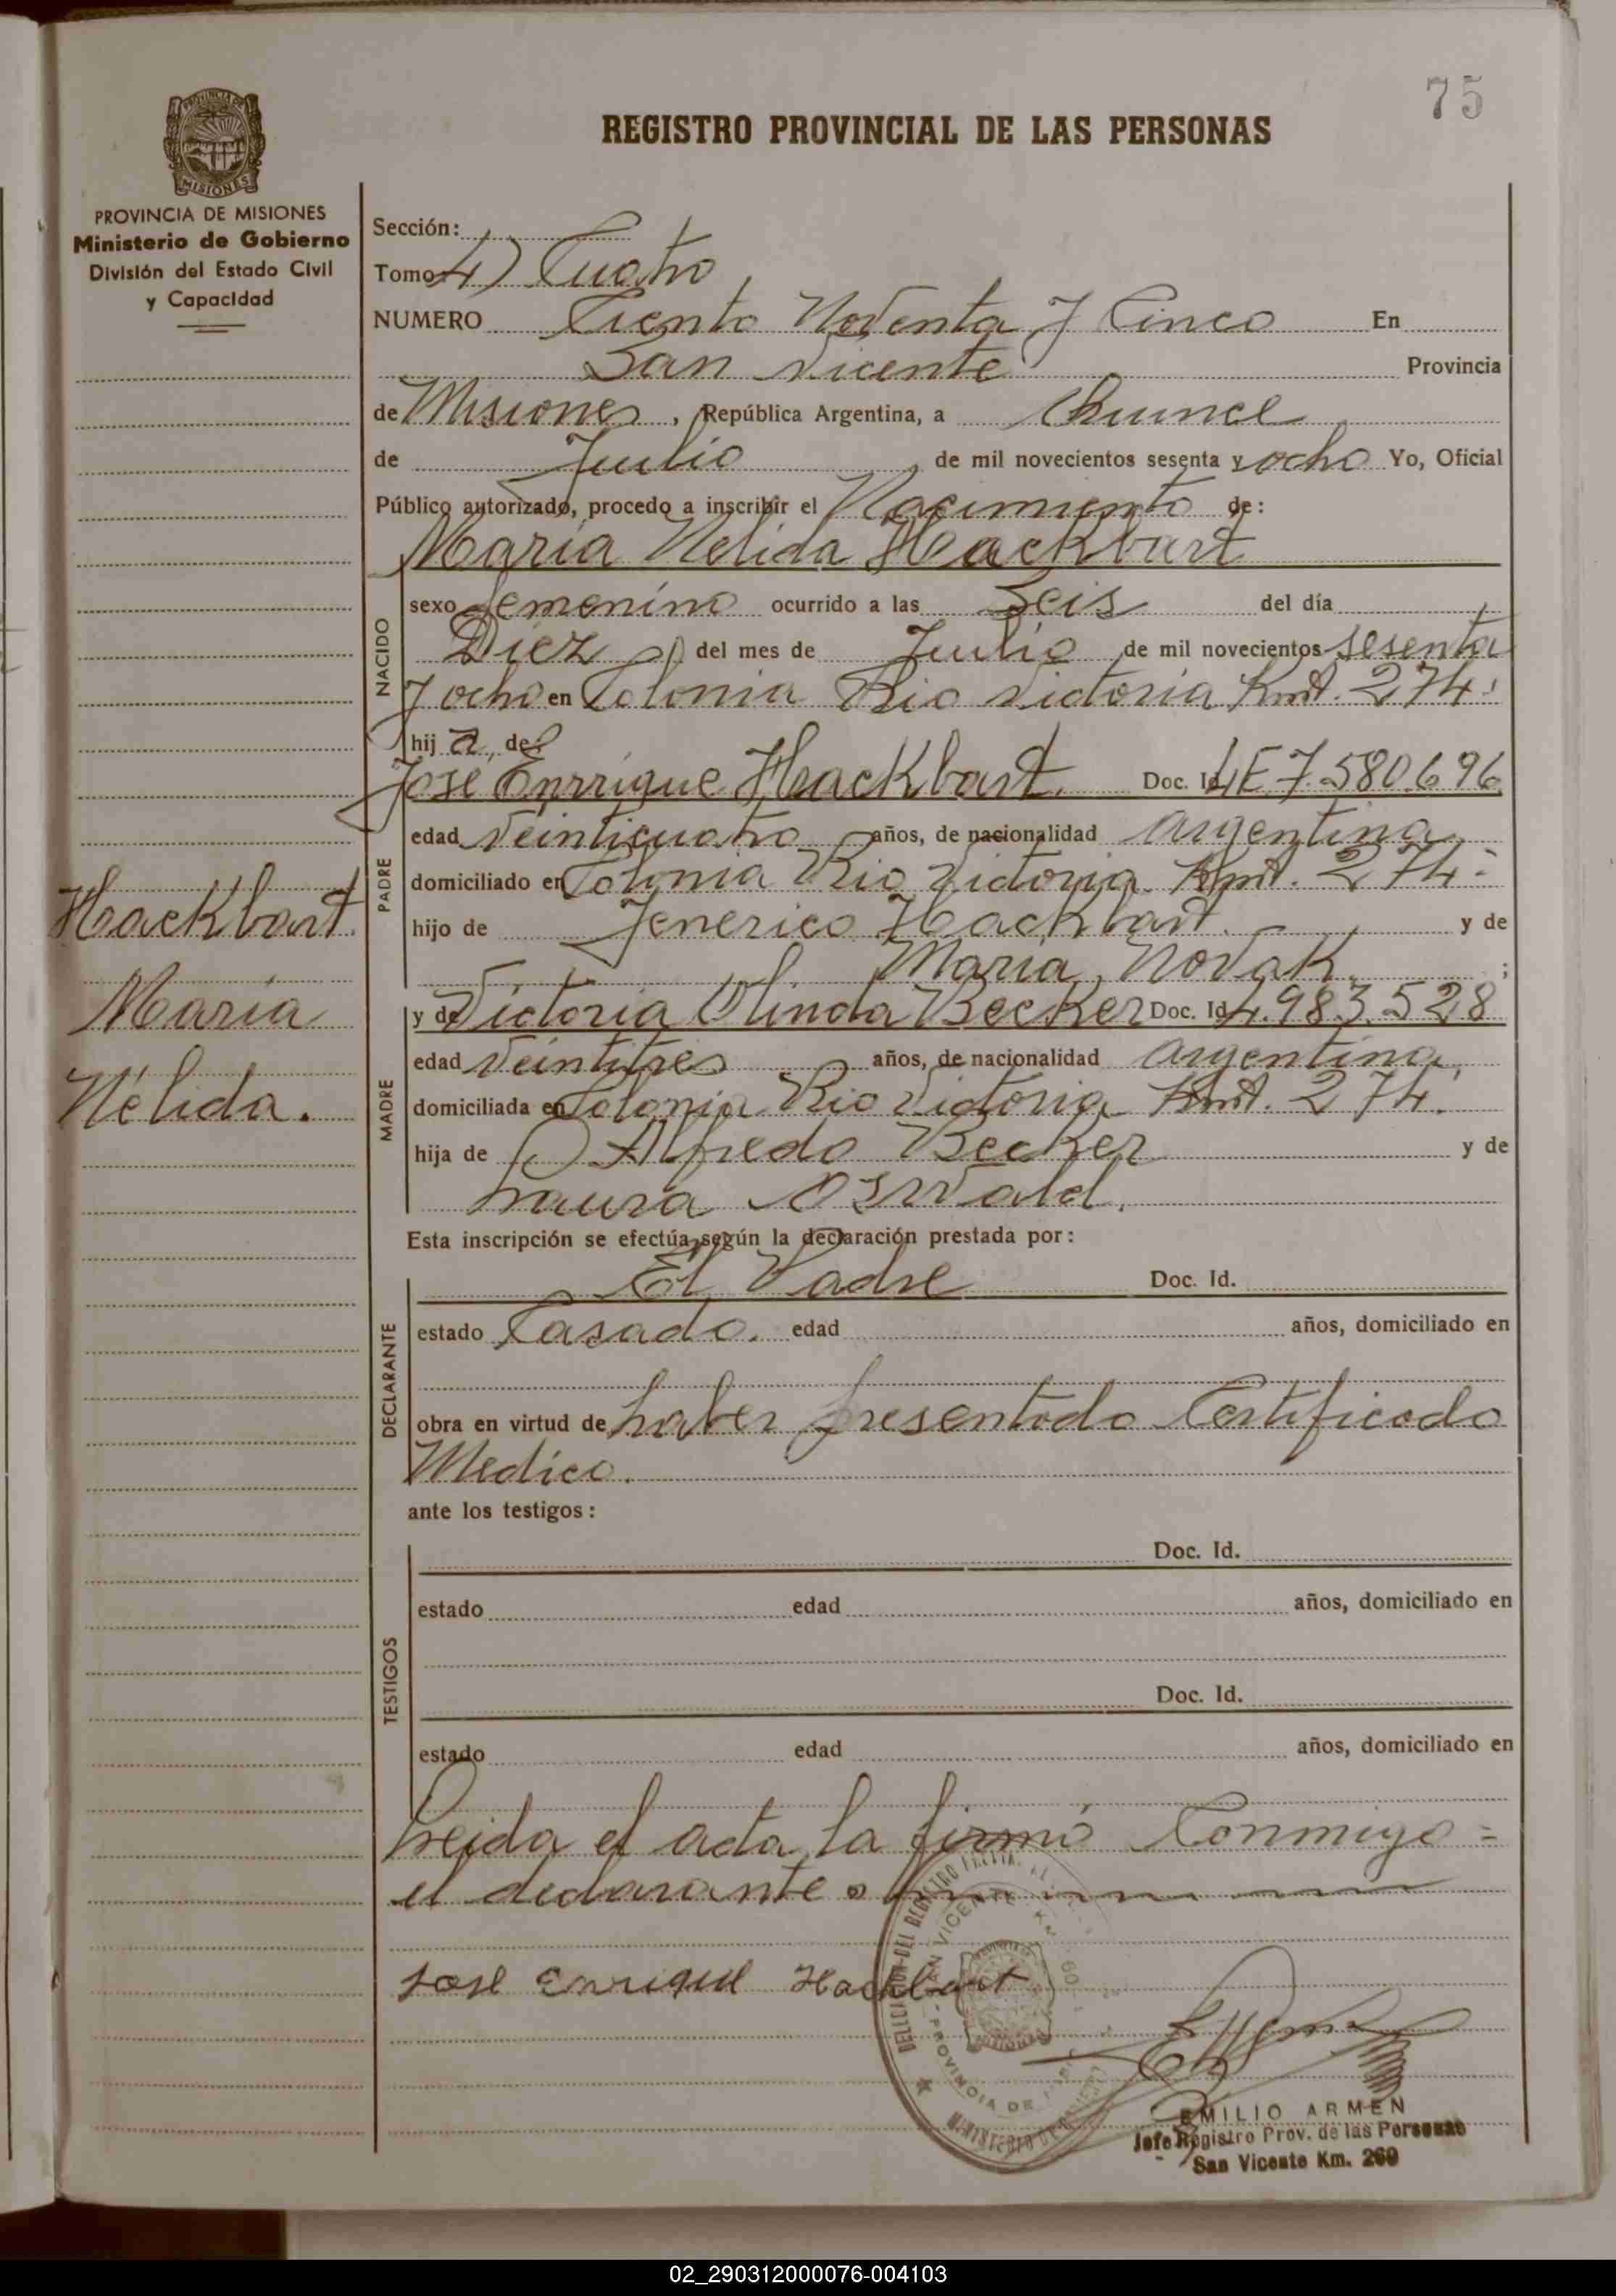 75
REGISTRO PROVINCIAL DE LAS PERSONAS
MISIONES
PROVINCIA DE MISIONES
Ministerio de Gobierno
División del Estado Civil
y Capacidad
Sección:
Tomo 4) Cuatro
NUMERO Ciento Noventa y Cinco En
San Vicente Provincia
de Misiones, República Argentina, a Quince
de Julio de mil novecientos sesenta y ocho Yo, Oficial
Público autorizado, procedo a inscribir el Nacimiento de:
Maria Nelida Hackbart
NACIDO
sexo femenino ocurrido a las Seis del día
Diez del mes de Julio de mil novecientos sesenta
y ocho en Colonia Rio Victoria Kmt. 274.
hij a de
Jose Enrrique Hackbart. Doc. Id LE 7.580.696
PADRE
edad veinticuatro años, de nacionalidad argentina
domiciliado en Colonia Rio Victoria Kmt. 274.
hijo de Jenerico Hackbart. y de
Maria Novak. ;
y de Victoria Olinda Becker Doc. Id 4.983.528
MADRE
edad veintitres años, de nacionalidad argentina,
domiciliada en Colonia Rio Victoria Kmt. 274.
hija de Alfredo Becker y de
Laura Oswald.
Hackbart.
Maria
Nélida.
Esta inscripción se efectúa según la declaración prestada por:
DECLARANTE
El Padre Doc. Id.
estado Casado. edad años, domiciliado en
obra en virtud de haber presentado Certificado
Medico.
ante los testigos:
TESTIGOS
Doc. Id.
estado edad años, domiciliado en
Doc. Id.
estado edad años, domiciliado en
Leida el acta, la firmó Conmigo =
el declarante
Jose Enrique Hackbart
EMILIO ARMEN
Jefe Registro Prov. de las Personas
San Vicente Km. 269
02_290312000076-004103